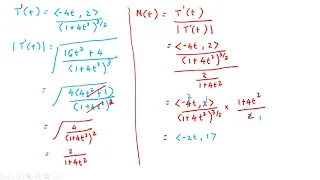 T'(t) = <-4t, 2> / (1+4t²)^3/2
|T'(t)| = √(16t² + 4 / (1+4t²)³)
= √(4(4t²+1) / (1+4t²)³ 2)
= √(4 / (1+4t²)²)
= 2 / 1+4t²
N(t) = T'(t) / |T'(t)|
= <-4t, 2> / (1+4t²)^3/2 / 2 / 1+4t²
= <-4t, 2> 2 1 / (1+4t²)^3/2 × 1+4t² / 2 1
= <-2t, 1>